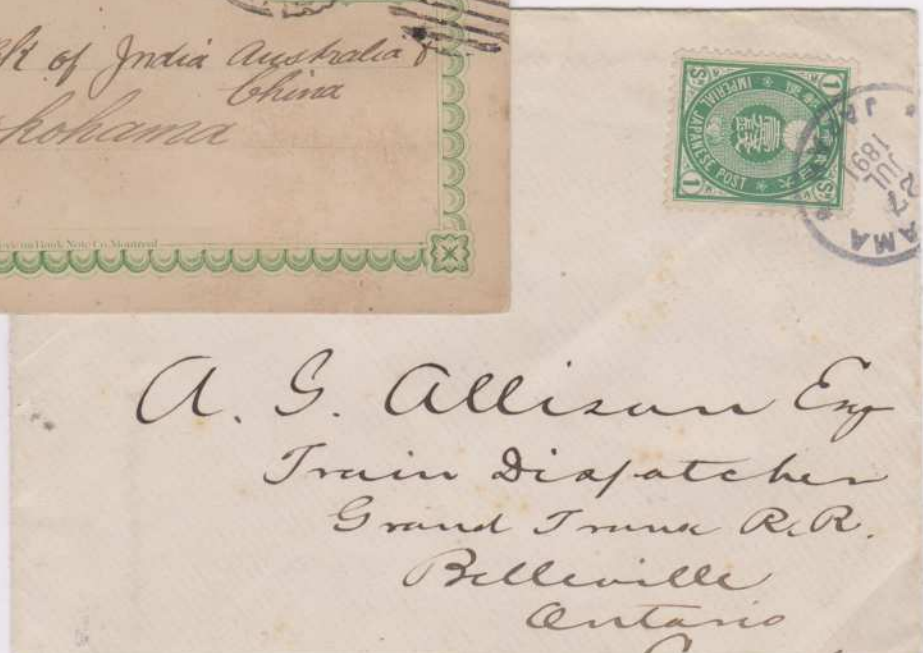 of India Australia &
China
kohama
American Bank Note Co. Montreal
1 Sn 1 Sn
IMPERIAL JAPANESE POST
大日本帝國郵便
壹錢
1 Sn 1 Sn
JAPAN
27
JUL
1891
AMA
A. G. Allison Esq
Train Dispatcher
Grand Trunk R.R.
Belleville
Ontario